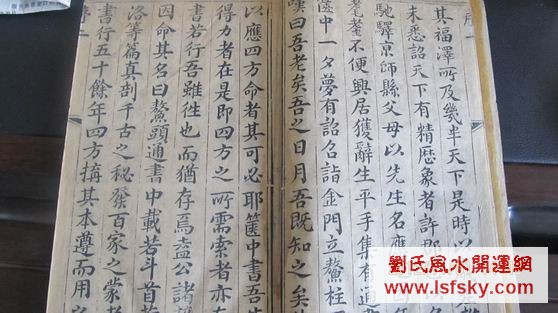 序一
其福澤所及幾半天下是時以
未悉詔天下有精歷象者許郡
馳驛京師縣父母以先生名應
耄耋不便興居獲辭生平手集有通
篋中一夕夢有詔召詣金門立鰲柱
嘆曰吾老矣吾之日月吾既知之矣
以應四方命者其可必耶篋中書吾生
得力者在是即四方之所需索者亦
書若行吾雖徃也而猶存焉盍公諸
因命其名曰鰲頭通書中載若斗首若
洛等篇真剖千古之秘發百家之蒙
書行五十餘年四方搆其本遵而用
劉氏風水開運網
www.lsfsky.com